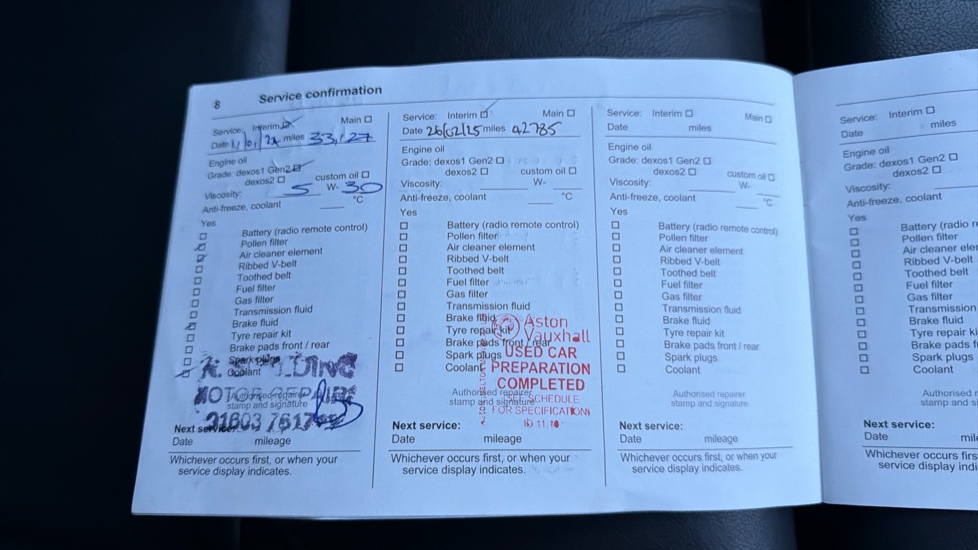 8 Service confirmation
Service: Interim Main
Date miles 33,127
Engine oil
Grade: dexos1 Gen2
dexos2 custom oil
Viscosity: 5 W- 30
Anti-freeze, coolant °C
Yes
Battery (radio remote control)
Pollen filter
Air cleaner element
Ribbed V-belt
Toothed belt
Fuel filter
Gas filter
Transmission fluid
Brake fluid
Tyre repair kit
Brake pads front / rear
Spark plugs
Coolant
MOTOR REPAIRS
Authorised repairer
stamp and signature
Next service:
Date mileage
Whichever occurs first, or when your
service display indicates.
Service: Interim Main
Date 26/02/25 miles 42785
Engine oil
Grade: dexos1 Gen2
dexos2 custom oil
Viscosity: W-
Anti-freeze, coolant °C
Yes
Battery (radio remote control)
Pollen filter
Air cleaner element
Ribbed V-belt
Toothed belt
Fuel filter
Gas filter
Transmission fluid
Brake fluid
Tyre repair kit
Brake pads front / rear
Spark plugs
Coolant
Aston
Vauxhall
USED CAR
PREPARATION
COMPLETED
SCHEDULE
FOR SPECIFICATION
Authorised repairer
stamp and signature
Next service:
Date mileage
Whichever occurs first, or when your
service display indicates.
Service: Interim Main
Date miles
Engine oil
Grade: dexos1 Gen2
dexos2 custom oil
Viscosity: W-
Anti-freeze, coolant °C
Yes
Battery (radio remote control)
Pollen filter
Air cleaner element
Ribbed V-belt
Toothed belt
Fuel filter
Gas filter
Transmission fluid
Brake fluid
Tyre repair kit
Brake pads front / rear
Spark plugs
Coolant
Authorised repairer
stamp and signature
Next service:
Date mileage
Whichever occurs first, or when your
service display indicates.
Service: Interim
Date miles
Engine oil
Grade: dexos1 Gen2
dexos2
Viscosity:
Anti-freeze, coolant
Yes
Battery (radio
Pollen filter
Air cleaner
Ribbed V-belt
Toothed belt
Fuel filter
Gas filter
Transmission
Brake fluid
Tyre repair
Brake pads
Spark plugs
Coolant
Authorised
stamp and
Next service:
Date
Whichever occurs
service display